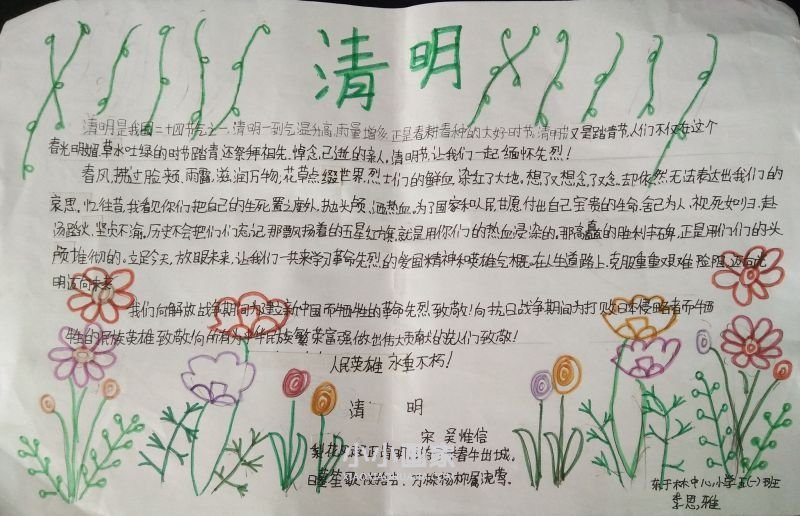 清明
清明是我国二十四节气之一,清明一到气温升高,雨量增多,正是春耕春种的大好时节.清明节又是踏青节,人们不仅在这个
春光明媚草水吐绿的时节踏青,还祭拜祖先,悼念已逝的亲人,清明节,让我们一起缅怀先烈!
春风拂过脸颊,雨露滋润万物,花草点缀世界.烈士们的鲜血染红了大地,想了又想,念了又念,却依然无法表达出我们的
哀思。忆往昔,我看见你们把自己的生死置之度外,抛头颅,洒热血,为了国家和人民甘愿付出自己宝贵的生命,舍己为人,视死如归,赴
汤蹈火,坚贞不渝。历史不会把你们忘记,那飘扬着的五星红旗,就是用你们的热血浸染的,那高矗的胜利丰碑,正是用们们的头
颅堆彻的。立足今天,放眼未来,让我们一共来学习革命先烈的爱国精神和英雄气概,在人生道路上,克服重重艰难险阻,迈向光
明迈向未来
我们向解放战争期间为建立新中国而牺牲的革命先烈致敬!向抗日战争期间为打败日本侵略者而牺
牲的民族英雄致敬!向所有为中华民族繁荣富强做出伟大贡献的人们致敬!
人民英雄永垂不朽!
清 明
宋 吴惟信
梨花风起正清明,游子寻春半出城。
日暮笙歌收拾去,万株杨柳属流莺。
小小画家
中心小学五(一)班
李思雅